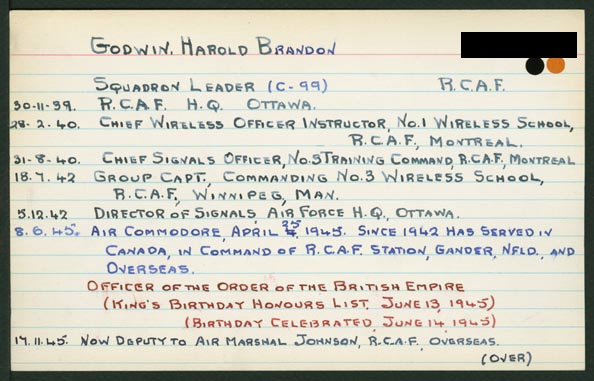 GODWIN, HAROLD BRANDON
SQUADRON LEADER (C-99) R.C.A.F.
30-11-39. R.C.A.F. H.Q. OTTAWA.
28-2-40. CHIEF WIRELESS OFFICER INSTRUCTOR, NO.1 WIRELESS SCHOOL,
R.C.A.F., MONTREAL.
31-8-40. CHIEF SIGNALS OFFICER, NO.3 TRAINING COMMAND, R.C.A.F., MONTREAL
18.7.42 GROUP CAPT., COMMANDING NO.3 WIRELESS SCHOOL,
R.C.A.F., WINNIPEG, MAN.
5.12.42 DIRECTOR OF SIGNALS, AIR FORCE H.Q., OTTAWA.
8.6.45. AIR COMMODORE, APRIL 25, 1945. SINCE 1942 HAS SERVED IN
CANADA, IN COMMAND OF R.C.A.F. STATION, GANDER, NFLD., AND
OVERSEAS.
OFFICER OF THE ORDER OF THE BRITISH EMPIRE
(KING'S BIRTHDAY HONOURS LIST, JUNE 13, 1945)
(BIRTHDAY CELEBRATED, JUNE 14, 1945)
17.11.45. NOW DEPUTY TO AIR MARSHAL JOHNSON, R.C.A.F. OVERSEAS.
(OVER)